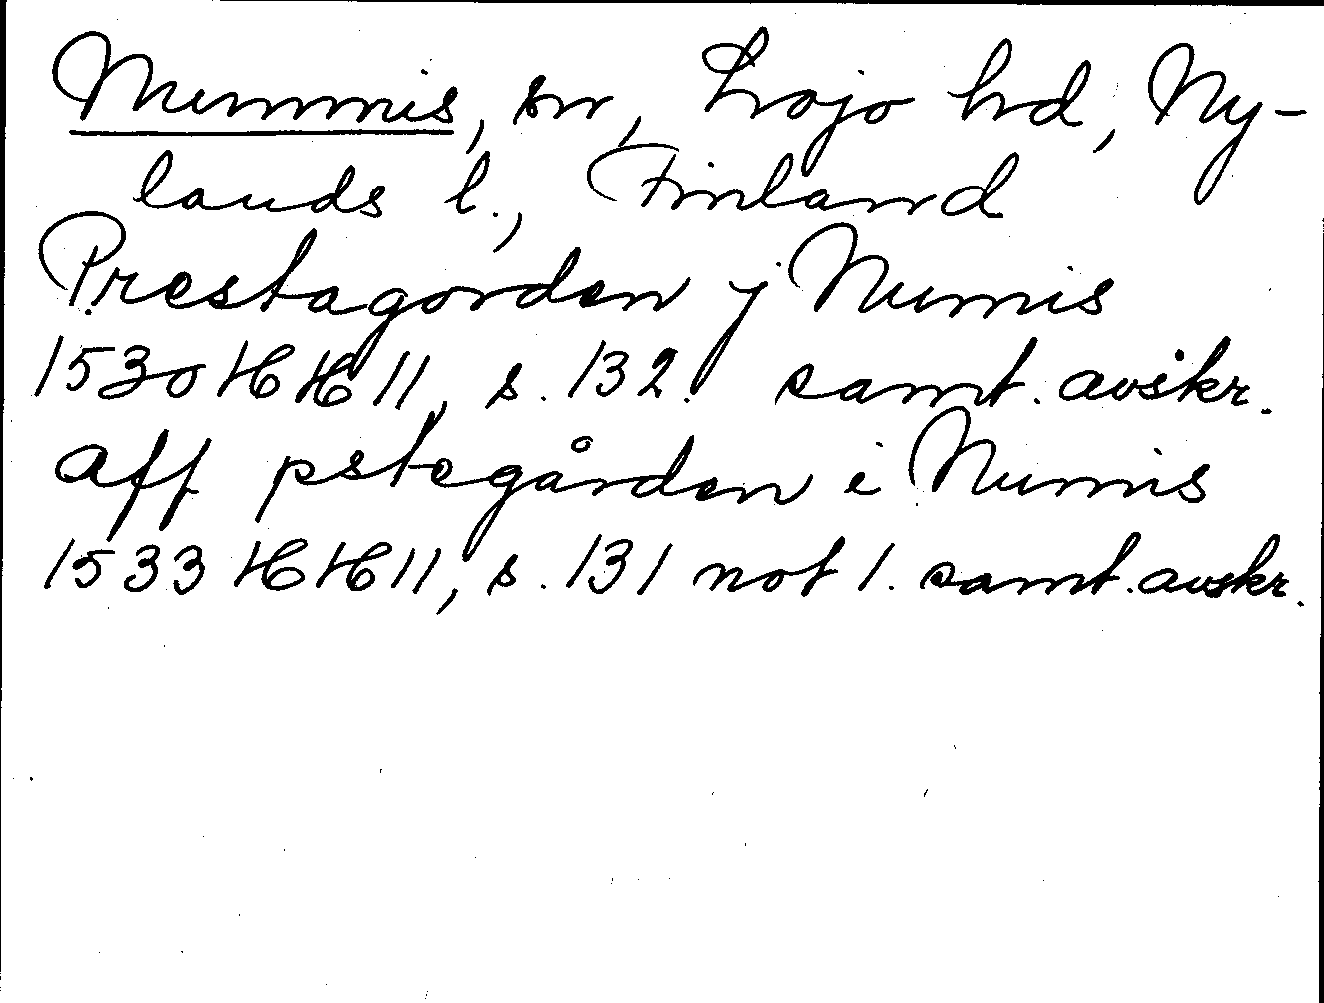 Nummis, sn, Lojo hd, Ny-
lands l., Finland
Prestagorden j Numis
1530 HH 11, s. 132. samt. avskr.
aff pstegården i Numis
1533 HH 11, s. 131 not 1. samt. avskr.